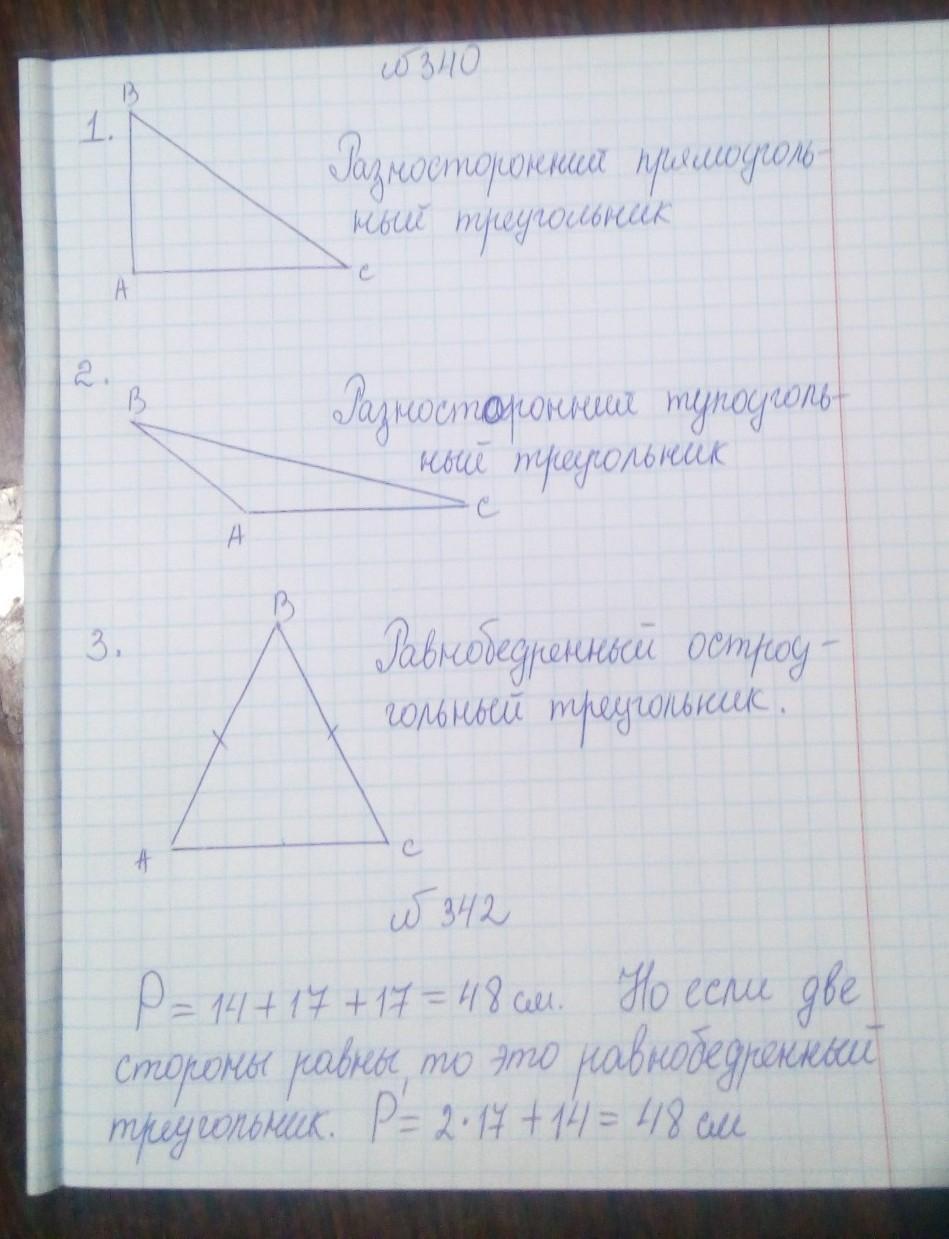 №340
1.
B
A
C
Разносторонний прямоуголь-
ный треугольник
2.
B
A
C
Разносторонний тупоуголь-
ный треугольник
3.
B
A
C
Равнобедренный остроу-
гольный треугольник.
№342
P = 14 + 17 + 17 = 48 см. Но если две
стороны равны, то это равнобедренный
треугольник. P = 2·17 + 14 = 48 см